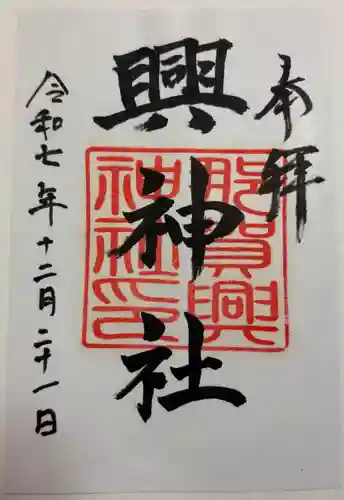 奉拝
興神社
肥賀興神社印
令和七年十二月二十一日